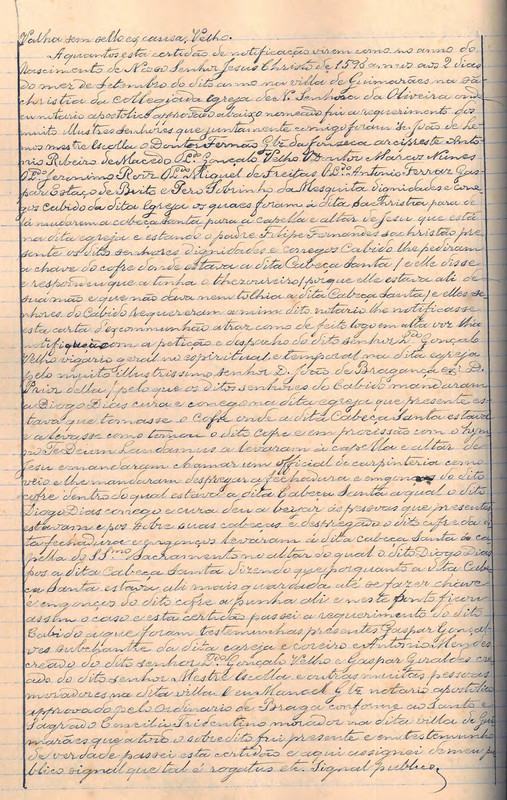 Valha sem sello ex causa, Velho.
A quantos esta certidão de notificação virem como no anno do
Nascimento de Nosso Senhor Jesus Christo de 1598 annos aos 2 dias
do mez de Setembro do dito anno na villa de Guimarães na Sa-
christia da Collegiada Egreja de N. Senhora da Oliveira onde
eu notario apostolico approvado abaixo nomeado fui a requerimento dos
muito Illustres senhores que juntamente comigo foram Sr. João de Le-
mos mestre escolla o Doutor Fernão Glz da Fonseca arcipreste Anto-
nio Ribeiro de Macedo Gonçalo Velho o Doutor Marcos Nunes
Jeronimo Rorz Miguel de Freitas o Antonio Ferraz Gas-
par Estaço de Brito e Pero Sobrinho da Mesquita dignidades e cone-
gos Cabido da dita Egreja os quaes foram á dita Sachristia para de
lá mudarem a Cabeça Santa para a Capella e altar de Jesu que está
na dita egreja e estando o padre Filipe Fernandes sachristão pre-
sente os ditos senhores dignidades e conegos Cabido lhe pediram
a chave do cofre donde estava a dita Cabeça Santa / e elle disse
e respondeu que a tinha o thezoureiro / porque elle estava ali de
sua mão e que não dava nem tolhia a dita Cabeça Santa / e elles se-
nhores do Cabido requereram a mim dito notario lhe notificasse
esta carta d'excommunhão atraz como de feito logo em alta voz lha
notifiquei com a petição e despacho do dito senhor Gonçalo
Velho vigario geral no espiritual e temporal na dita egreja
pelo muito illustrissimo senhor D. João de Bragança
Prior della / pelo que os ditos senhores do Cabido mandaram
a Diogo Dias cura e conego na dita egreja que presente es-
tava que tomasse o cofre onde a dita Cabeça Santa estava
e a levasse como tomou o dito cofre e em procissão com o Hym-
no Te Deum Laudamus a levaram á capella e altar de
Jesu e mandaram chamar um official de carpinteria como
veio e lhe mandaram despregar a fechadura e engonços do dito
cofre dentro do qual estava a dita Cabeça Santa a qual o dito
Diogo Dias conego e cura deu a bejar ás pessoas que presentes
estavam e pos sobre suas cabeças e despregado o dito cofre da di-
ta fechadura e engonços levaram á dita Cabeça Santa á ca-
pella do SSmo Sacramento no altar do qual o dito Diogo Dias
pos a dita Cabeça Santa dizendo que porquanto a dita Cabe-
ça Santa estava ali mais guardada até se fazer chave
e engonços do dito cofre a punha ali e neste ponto ficou
assim o caso e esta certidão passei a requerimento do dito
Cabido a que foram testemunhas presentes Gaspar Gonçal-
ves subchantre da dita egreja e coreiro e Antonio Mendes
creado do dito senhor Gonçalo Velho e Gaspar Giraldes cre-
ado do dito senhor Mestre Escolla e outras muitas pessoas
moradores na dita villa. E eu Manoel Glz notario apostolico
approvado pelo Ordinario de Braga conforme ao Santo e
Sagrado Concilio Tridentino morador na dita villa de Gui-
marães que a todo o sobredito fui presente e em testemunho
de verdade passei esta certidão e aqui assignei de meu pu-
blico signal que tal é rogatus etc. Signal publico.